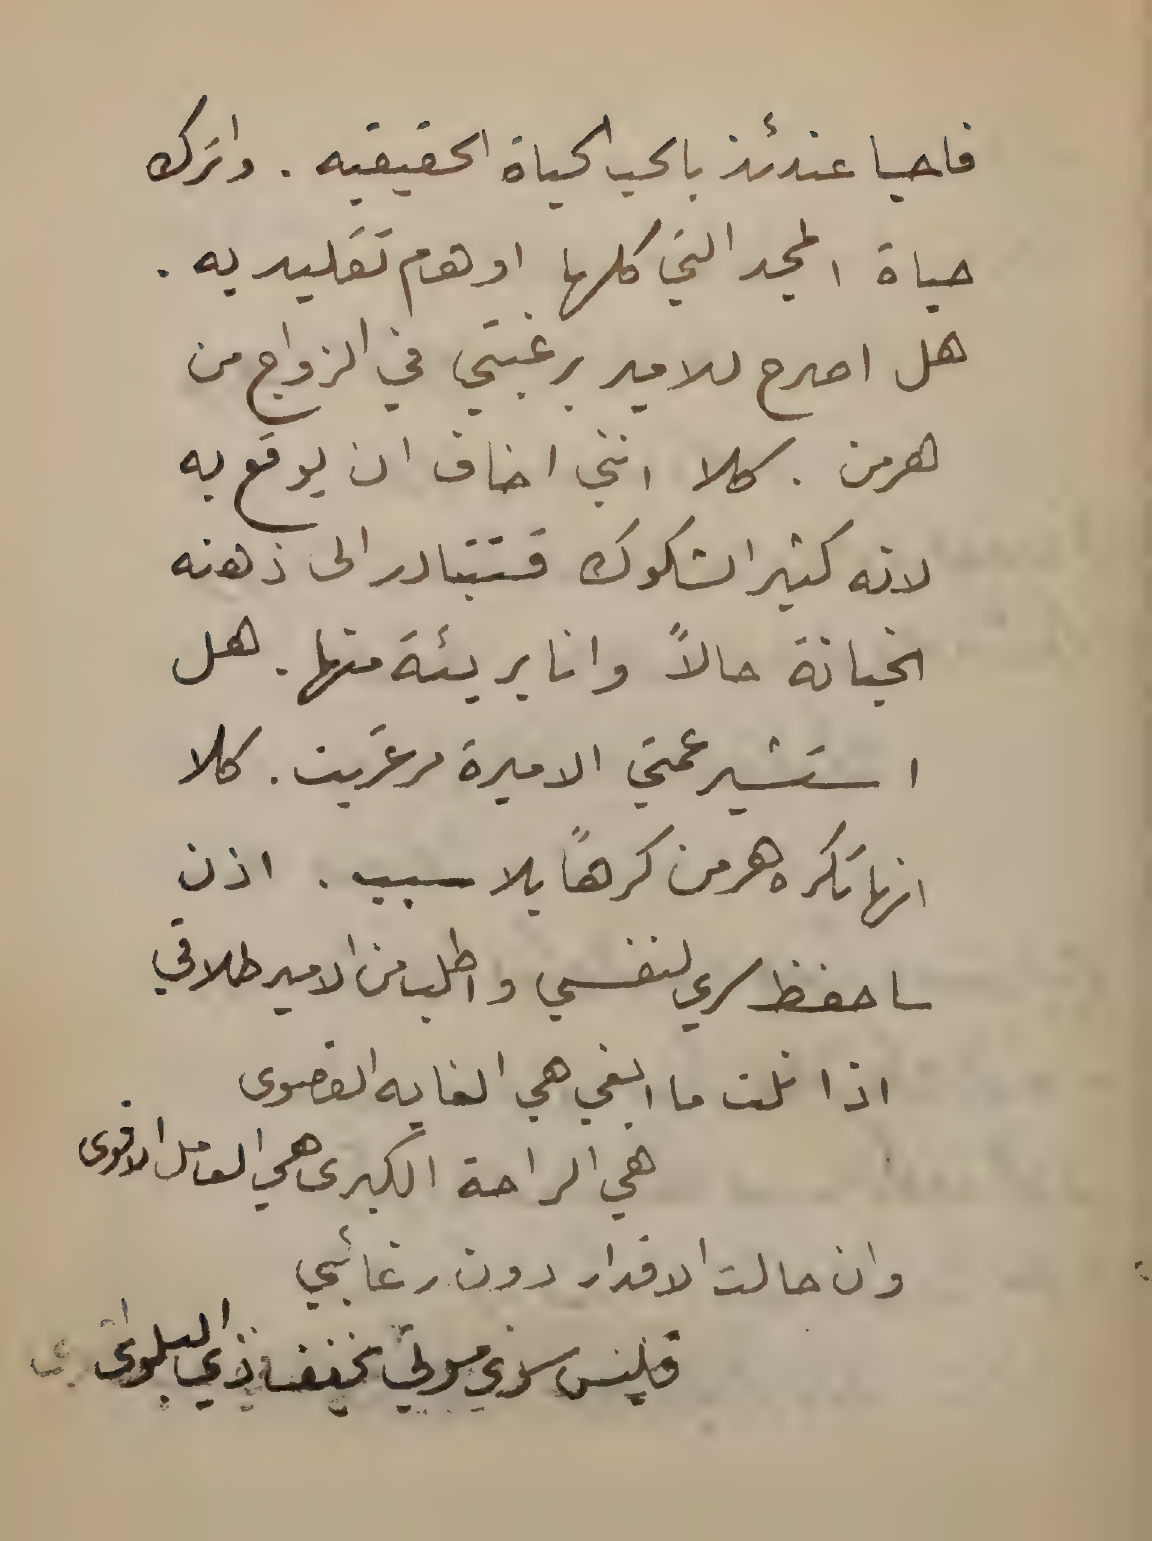 فاحيا عندئذ بالحب الحياة الحقيقيه . واترك
حياة المجد التي كلها اوهام تقليديه .
هل اصرح للامير برغبتي في الزواج من
هرمن . كلا انني اخاف ان يوقع به
لانه كثير الشكوك فتتبادر الى ذهنه
الخيانة حالاً وانا بريئة منها . هل
استشير عمتي الاميرة مرغريت . كلا
انها تكره هرمن كرهاً بلا سبب . اذن
ساحفظ سري لنفسي واطلب من الامير طلاقي
اذا نلت ما ابغي هي الغايه القصوى
هي الراحة الكبرى هي العامل الاقوى
وان حالت الاقدار دون رغائبي
فليس سوى موتي مخفف ذي البلوى